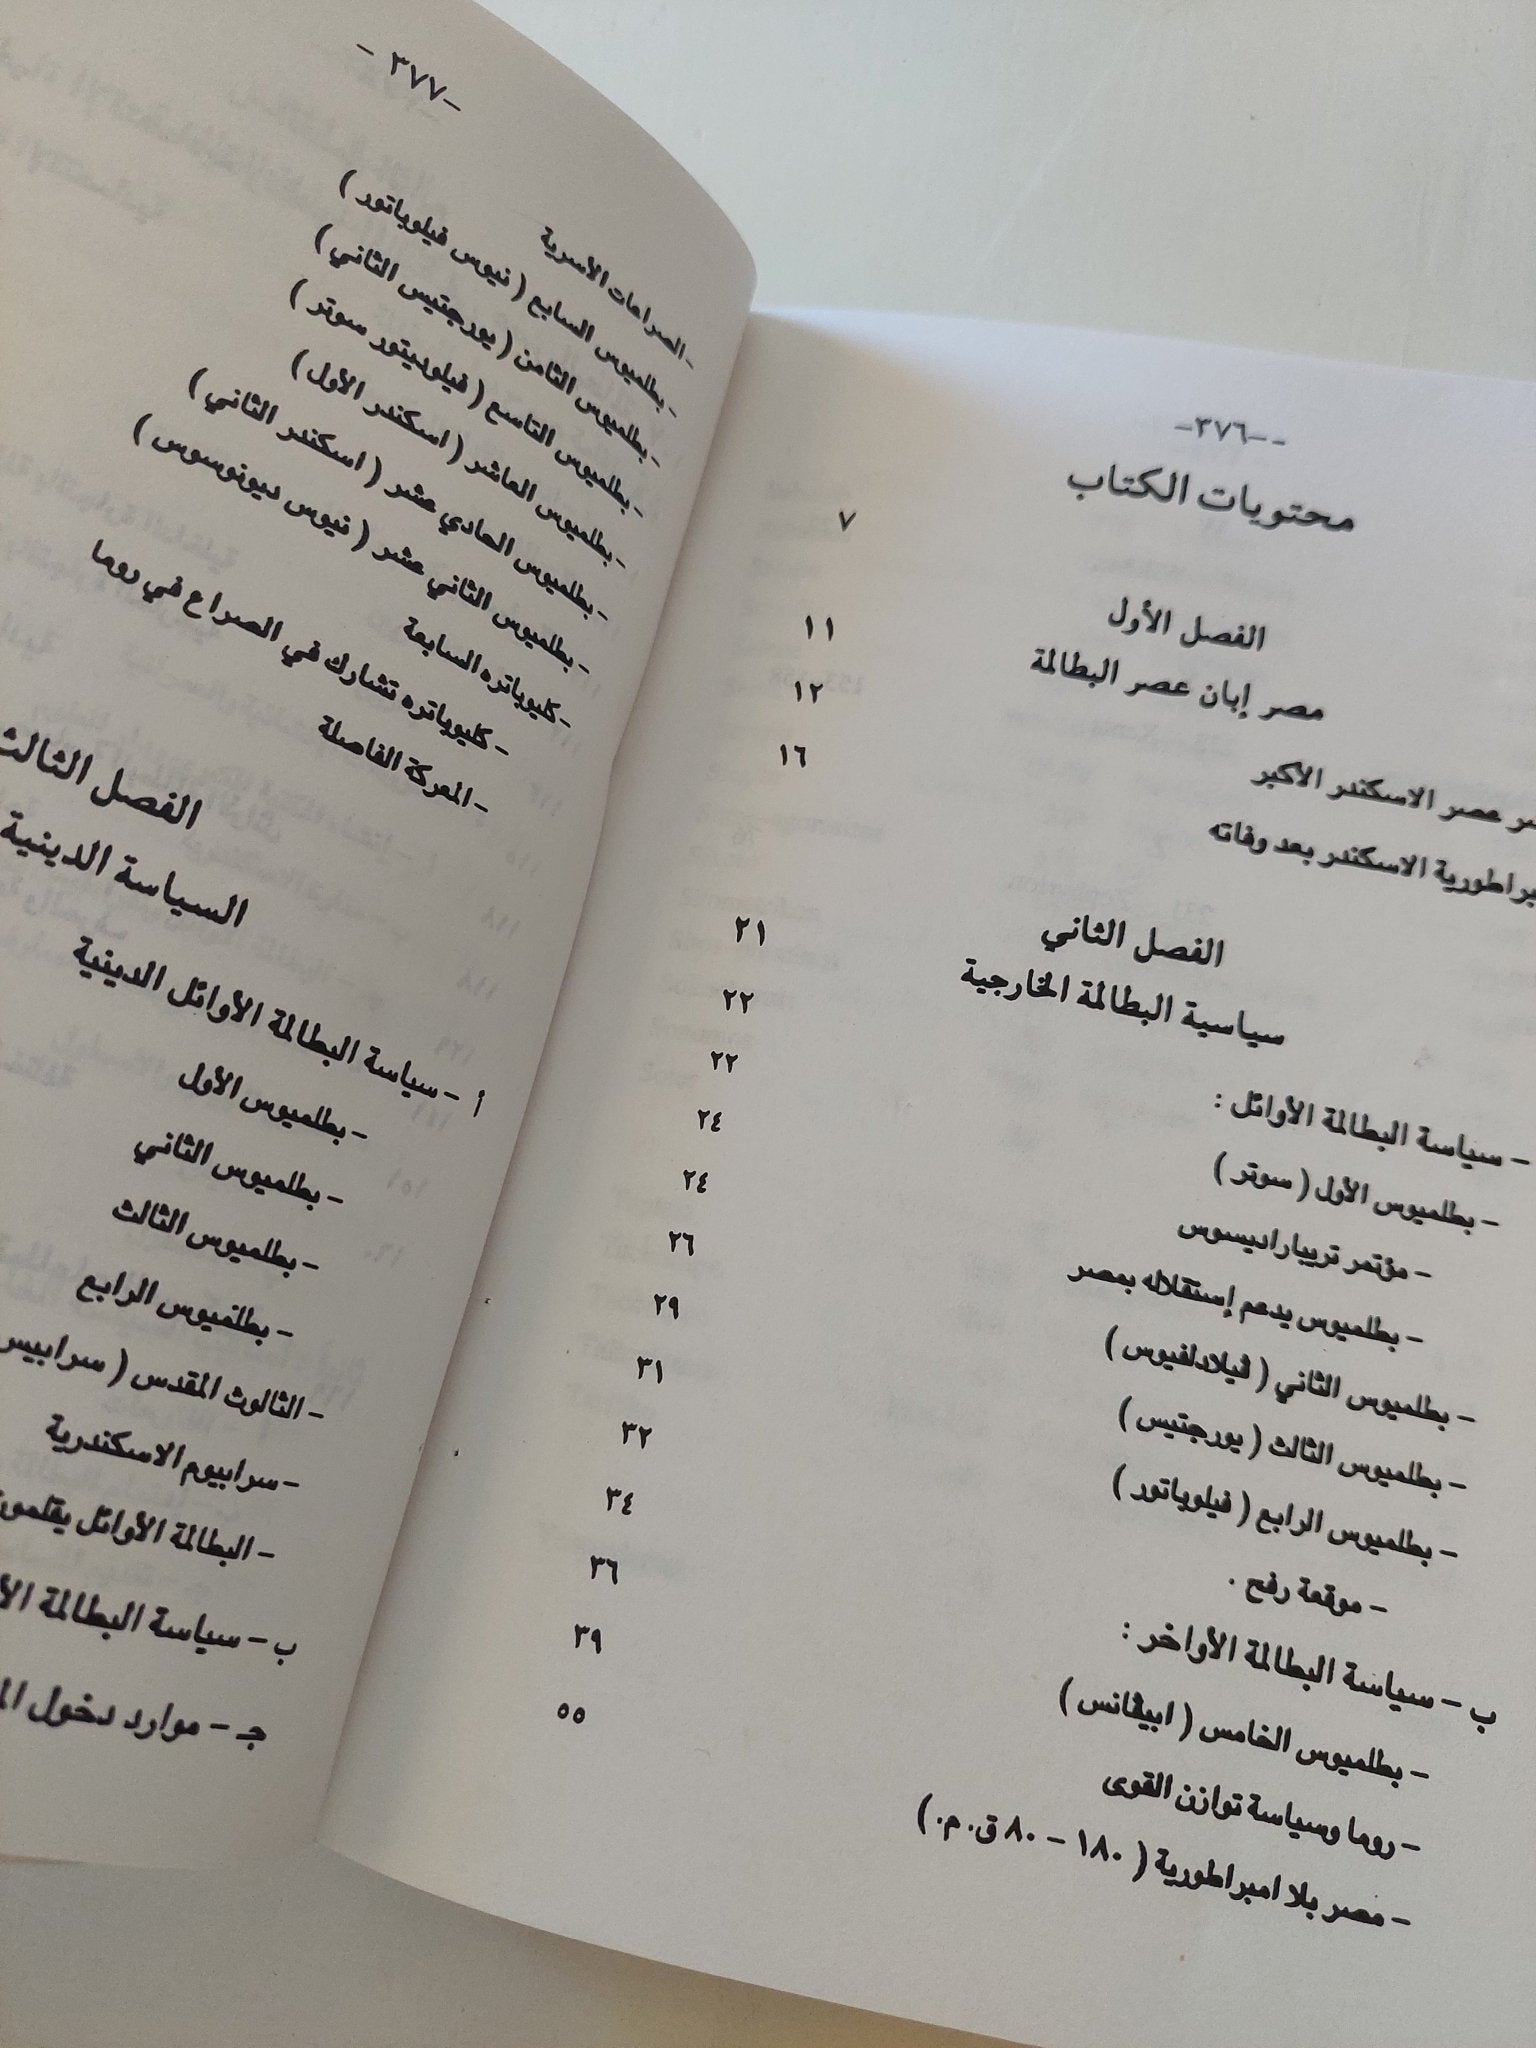 --٣٧٦-
محتويات الكتاب
٧
الفصل الأول
١١
مصر إبان عصر البطالمة
١٢
عصر الاسكندر الأكبر
١٦
الاسكندر بعد وفاته
الفصل الثاني
٢١
سياسية البطالمة الخارجية
٢٢
- سياسة البطالمة الأوائل :
٢٢
- بطلميوس الأول ( سوتر )
٢٤
- مؤتمر تريباراديسوس
٢٤
- بطلميوس يدعم إستقلاله بمصر
٢٦
- بطلميوس الثاني ( فيلادلفيوس )
٢٩
- بطلميوس الثالث ( يورجتيس )
٣١
- بطلميوس الرابع ( فيلوباتور )
٣٢
- موقعة رفح .
٣٤
ب - سياسة البطالمة الأواخر :
٣٦
- بطلميوس الخامس ( ابيڤانس )
٣٩
- روما وسياسة توازن القوى
٥٥
- مصر بلا امبراطورية ( ١٨٠ - ٨٠ ق.م. )
-٣٧٧ -
- الصراعات الأسرية
- بطلميوس السابع ( نيوس فيلوباتور )
- بطلميوس الثامن ( يورجتيس الثاني )
- بطلميوس التاسع ( فيلوميتور سوتر )
- بطلميوس العاشر ( اسكندر الأول )
- بطلميوس الحادي عشر ( اسكندر الثاني )
- بطلميوس الثاني عشر ( نيوس ديونوسوس )
- كليوباتره السابعة
- كليوباتره تشارك في الصراع في روما
- المعركة الفاصلة
الفصل الثالث
السياسة الدينية
أ - سياسة البطالمة الأوائل الدينية
- بطلميوس الأول
- بطلميوس الثاني
- بطلميوس الثالث
- بطلميوس الرابع
- الثالوث المقدس ( سرابيس
- سرابيوم الاسكندرية
- البطالمة الأوائل
ب - سياسة البطالمة
جـ - موارد دخول